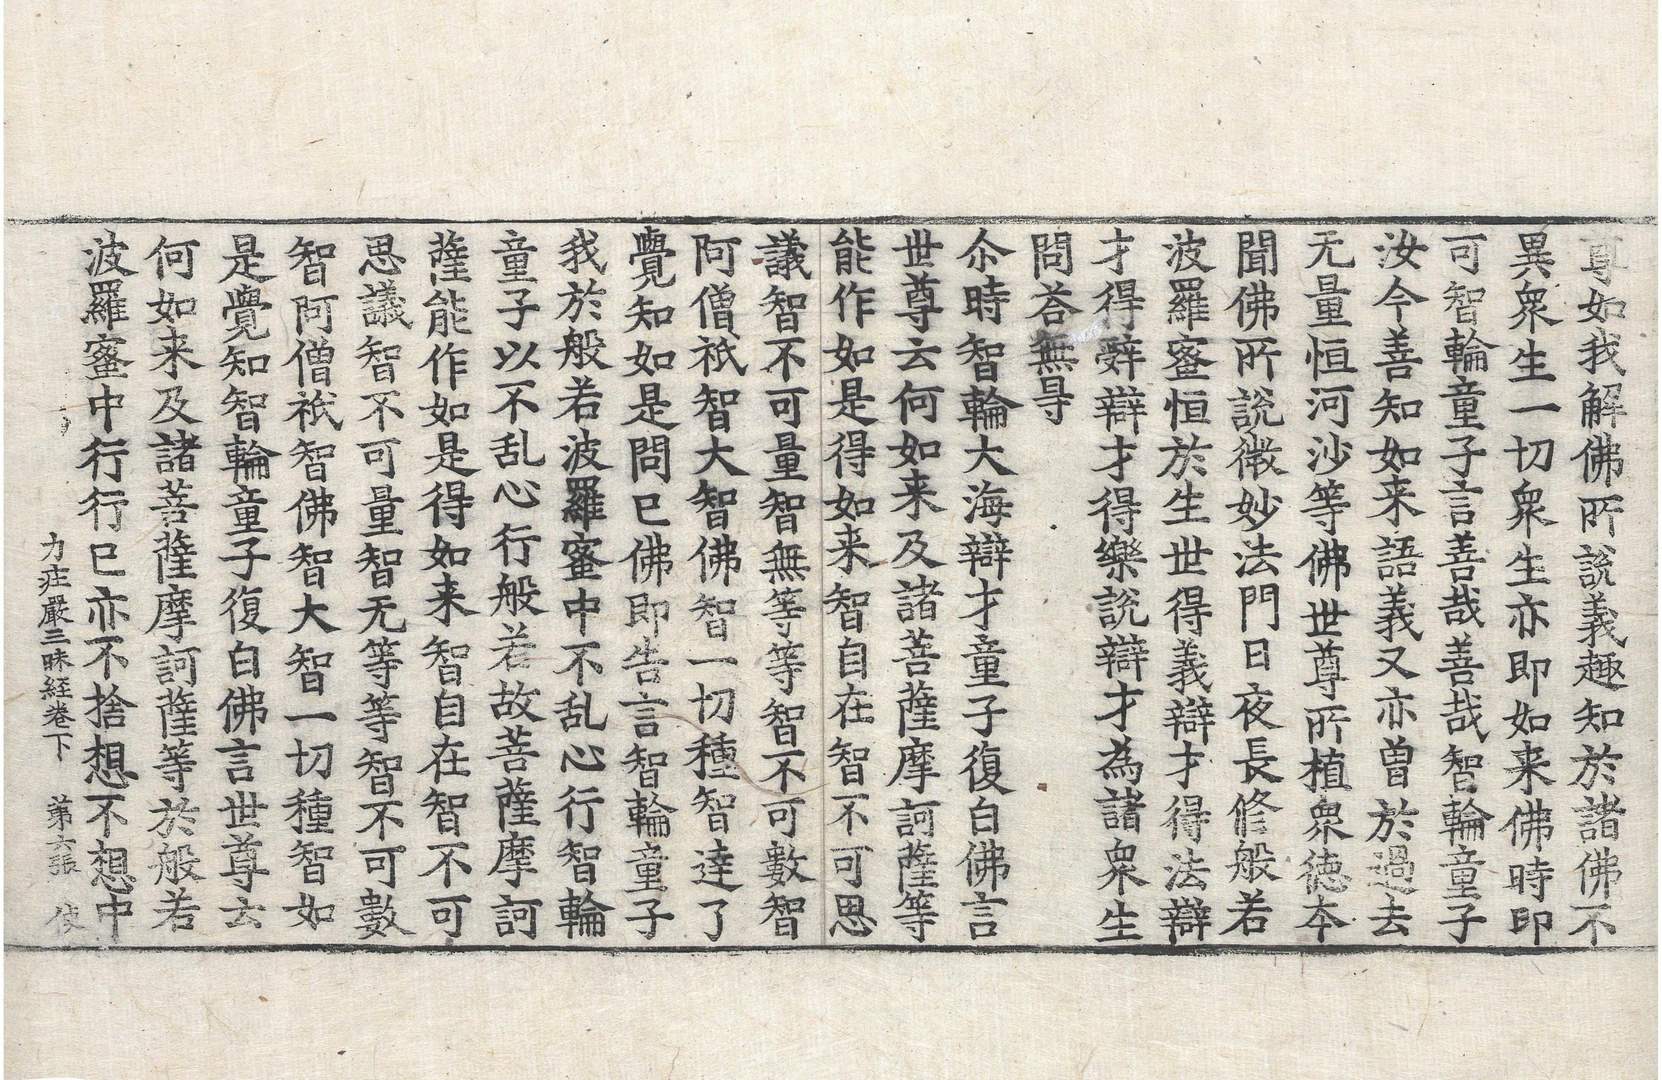 尊如我解佛所說義趣知於諸佛不
異衆生一切衆生亦即如来佛時印
可智輪童子言善哉善哉智輪童子
汝今善知如来語義又亦曾於過去
无量恒河沙等佛世尊所植衆徳本
聞佛所說微妙法門日夜長修般若
波羅蜜恒於生世得義辯才得法辯
才得辤辯才得樂說辯才為諸衆生
問荅無㝵
尒時智輪大海辯才童子復白佛言
世尊云何如来及諸菩薩摩訶薩等
能作如是得如来智自在智不可思
議智不可量智無等等智不可數智
阿僧祇智大智佛智一切種智達了
覺知如是問已佛即告言智輪童子
我於般若波羅蜜中不乱心行智輪
童子以不乱心行般若故菩薩摩訶
薩能作如是得如来智自在智不可
思議智不可量智无等等智不可數
智阿僧祇智佛智大智一切種智如
是覺知智輪童子復白佛言世尊云
何如来及諸菩薩摩訶薩等於般若
波羅蜜中行行已亦不捨想不想中
力疰嚴三昧経卷下 第六張 使